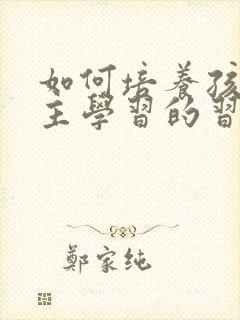 如何培養孩
主學習的習
鄭家纯